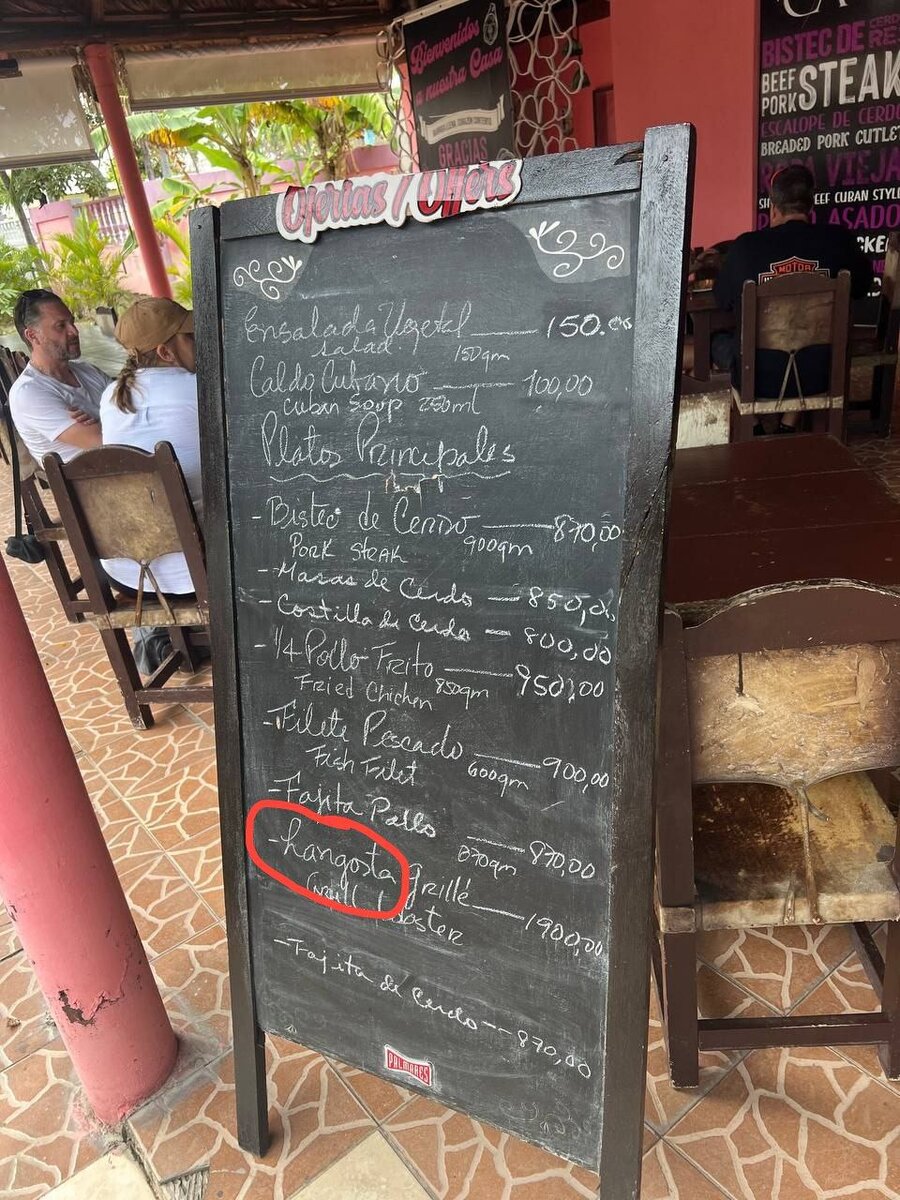 Bienvenidos
a nuestra Casa
GRACIAS
CA
BISTEC DE CERDO
RES
BEEF
PORK STEAK
ESCALOPE DE CERDO
BREADED PORK CUTLET
ROPA VIEJA
BEEF CUBAN STYLE
ASADO
Ofertas / Offers
Ensalada Vegetal 150.00
salad. 150gm
Caldo Cubano 100,00
Cuban Soup 250ml
Platos Principales
- Bistec de Cerdo 870,00
Pork Steak 900gm
- Masas de Cerdo - 850,00
- Costilla de Cerdo - 800,00
- 1/4 Pollo Frito 950,00
Fried Chicken 850gm
- Filete Pescado 900,00
Fish Filet 600gm
- Fajita Pollo 870,00
870gm
- Langosta Grillé 1900,00
Grill Lobster
- Fajita de Cerdo -- 870,00
PALMARES
MOTOR